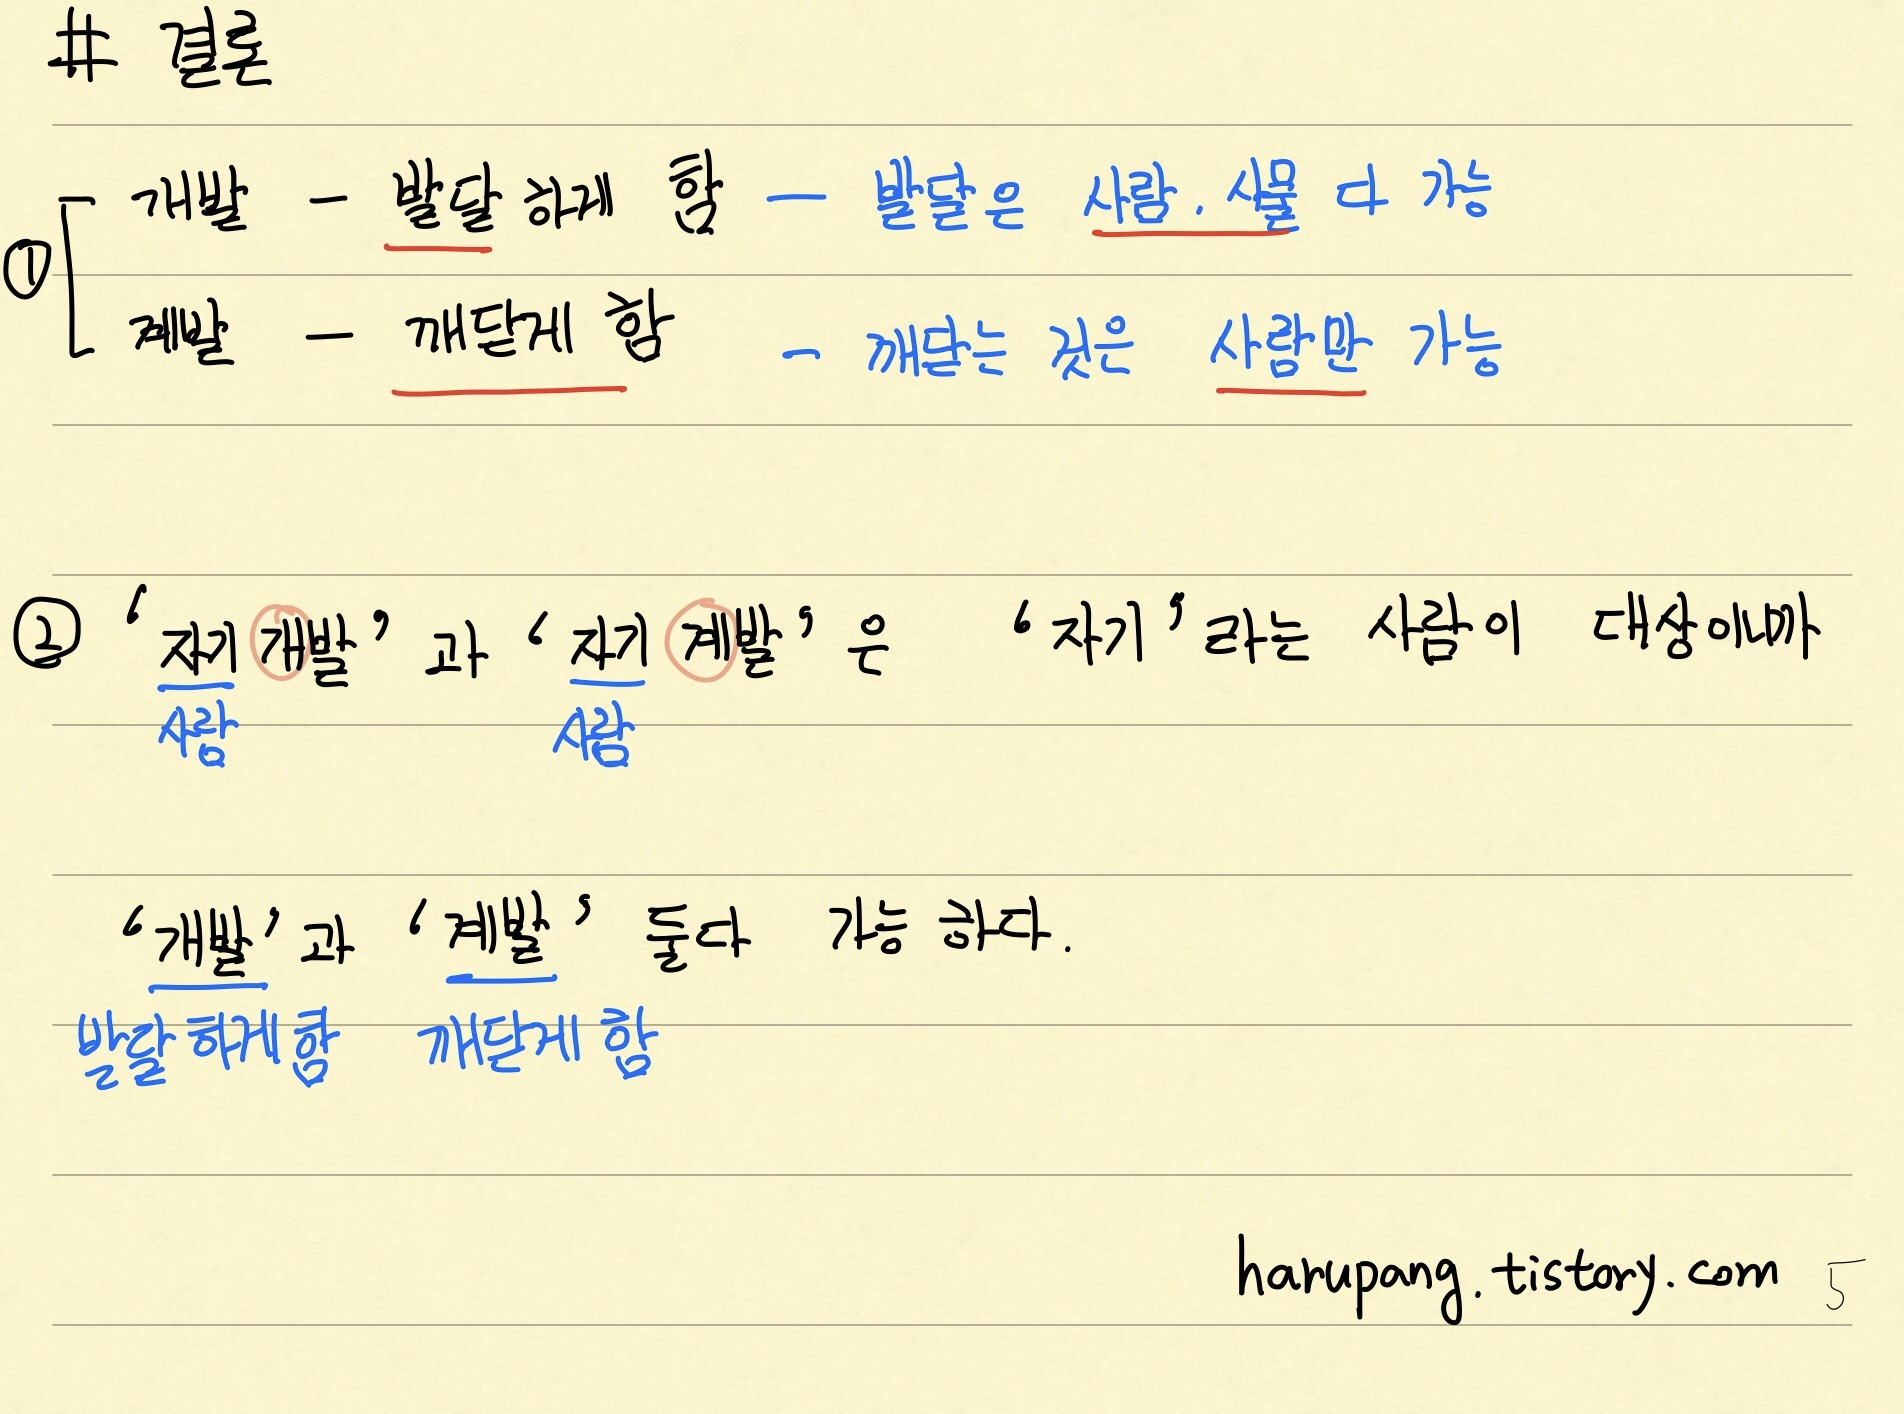 # 결론
① 개발 - 발달하게 함 - 발달은 사람, 사물 다 가능
계발 - 깨닫게 함 - 깨닫는 것은 사람만 가능
② '자기개발'과 '자기계발'은 '자기'라는 사람이 대상이니까
사람 사람
'개발'과 '계발' 둘다 가능하다.
발달하게함 깨닫게 함
harupang.tistory.com 5